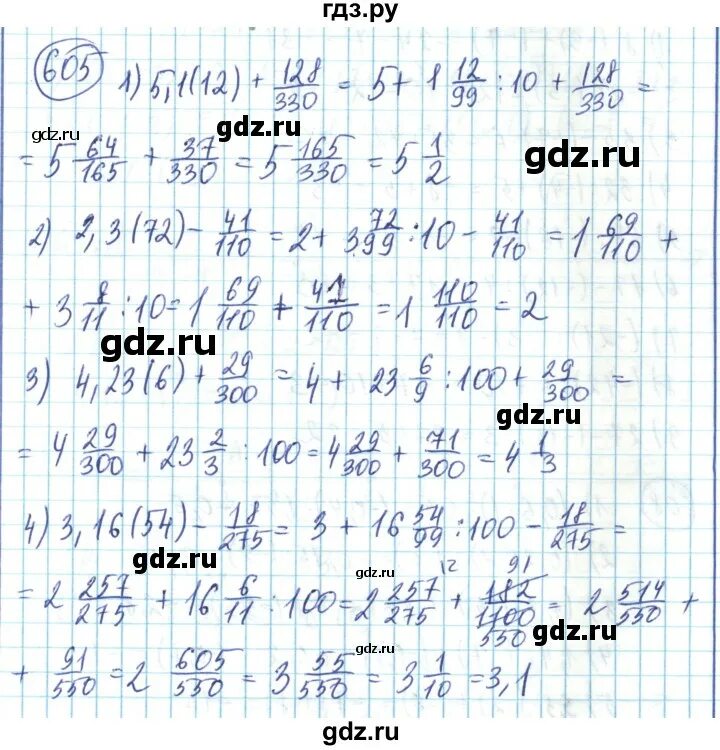 гдз.ру
605 1) 5,1(12) + 128/330 = 5 + 1 12/99 : 10 + 128/330 =
gdz.ru gdz.ru gdz.ru
= 5 64/165 + 37/330 = 5 165/330 = 5 1/2
2) 2,3(72) - 41/110 = 2 + 3 72/99 : 10 - 41/110 = 1 69/110 +
+ 3 8/11 : 10 = 1 69/110 + 41/110 = 1 110/110 = 2
gdz.ru gdz.ru
3) 4,23(6) + 29/300 = 4 + 23 6/9 : 100 + 29/300 =
gdz.ru
= 4 29/300 + 23 2/3 : 100 = 4 29/300 + 71/300 = 4 1/3
gdz.ru
4) 3,16(54) - 18/275 = 3 + 16 54/99 : 100 - 18/275 =
gdz.ru gdz.ru
= 2 257/275 + 16 6/11 : 100 = 2 257/275 /2 + 182/1100 91/550 = 2 514/550 +
gdz.ru
+ 91/550 = 2 605/550 = 3 55/550 = 3 1/10 = 3,1
gdz.ru gdz.ru